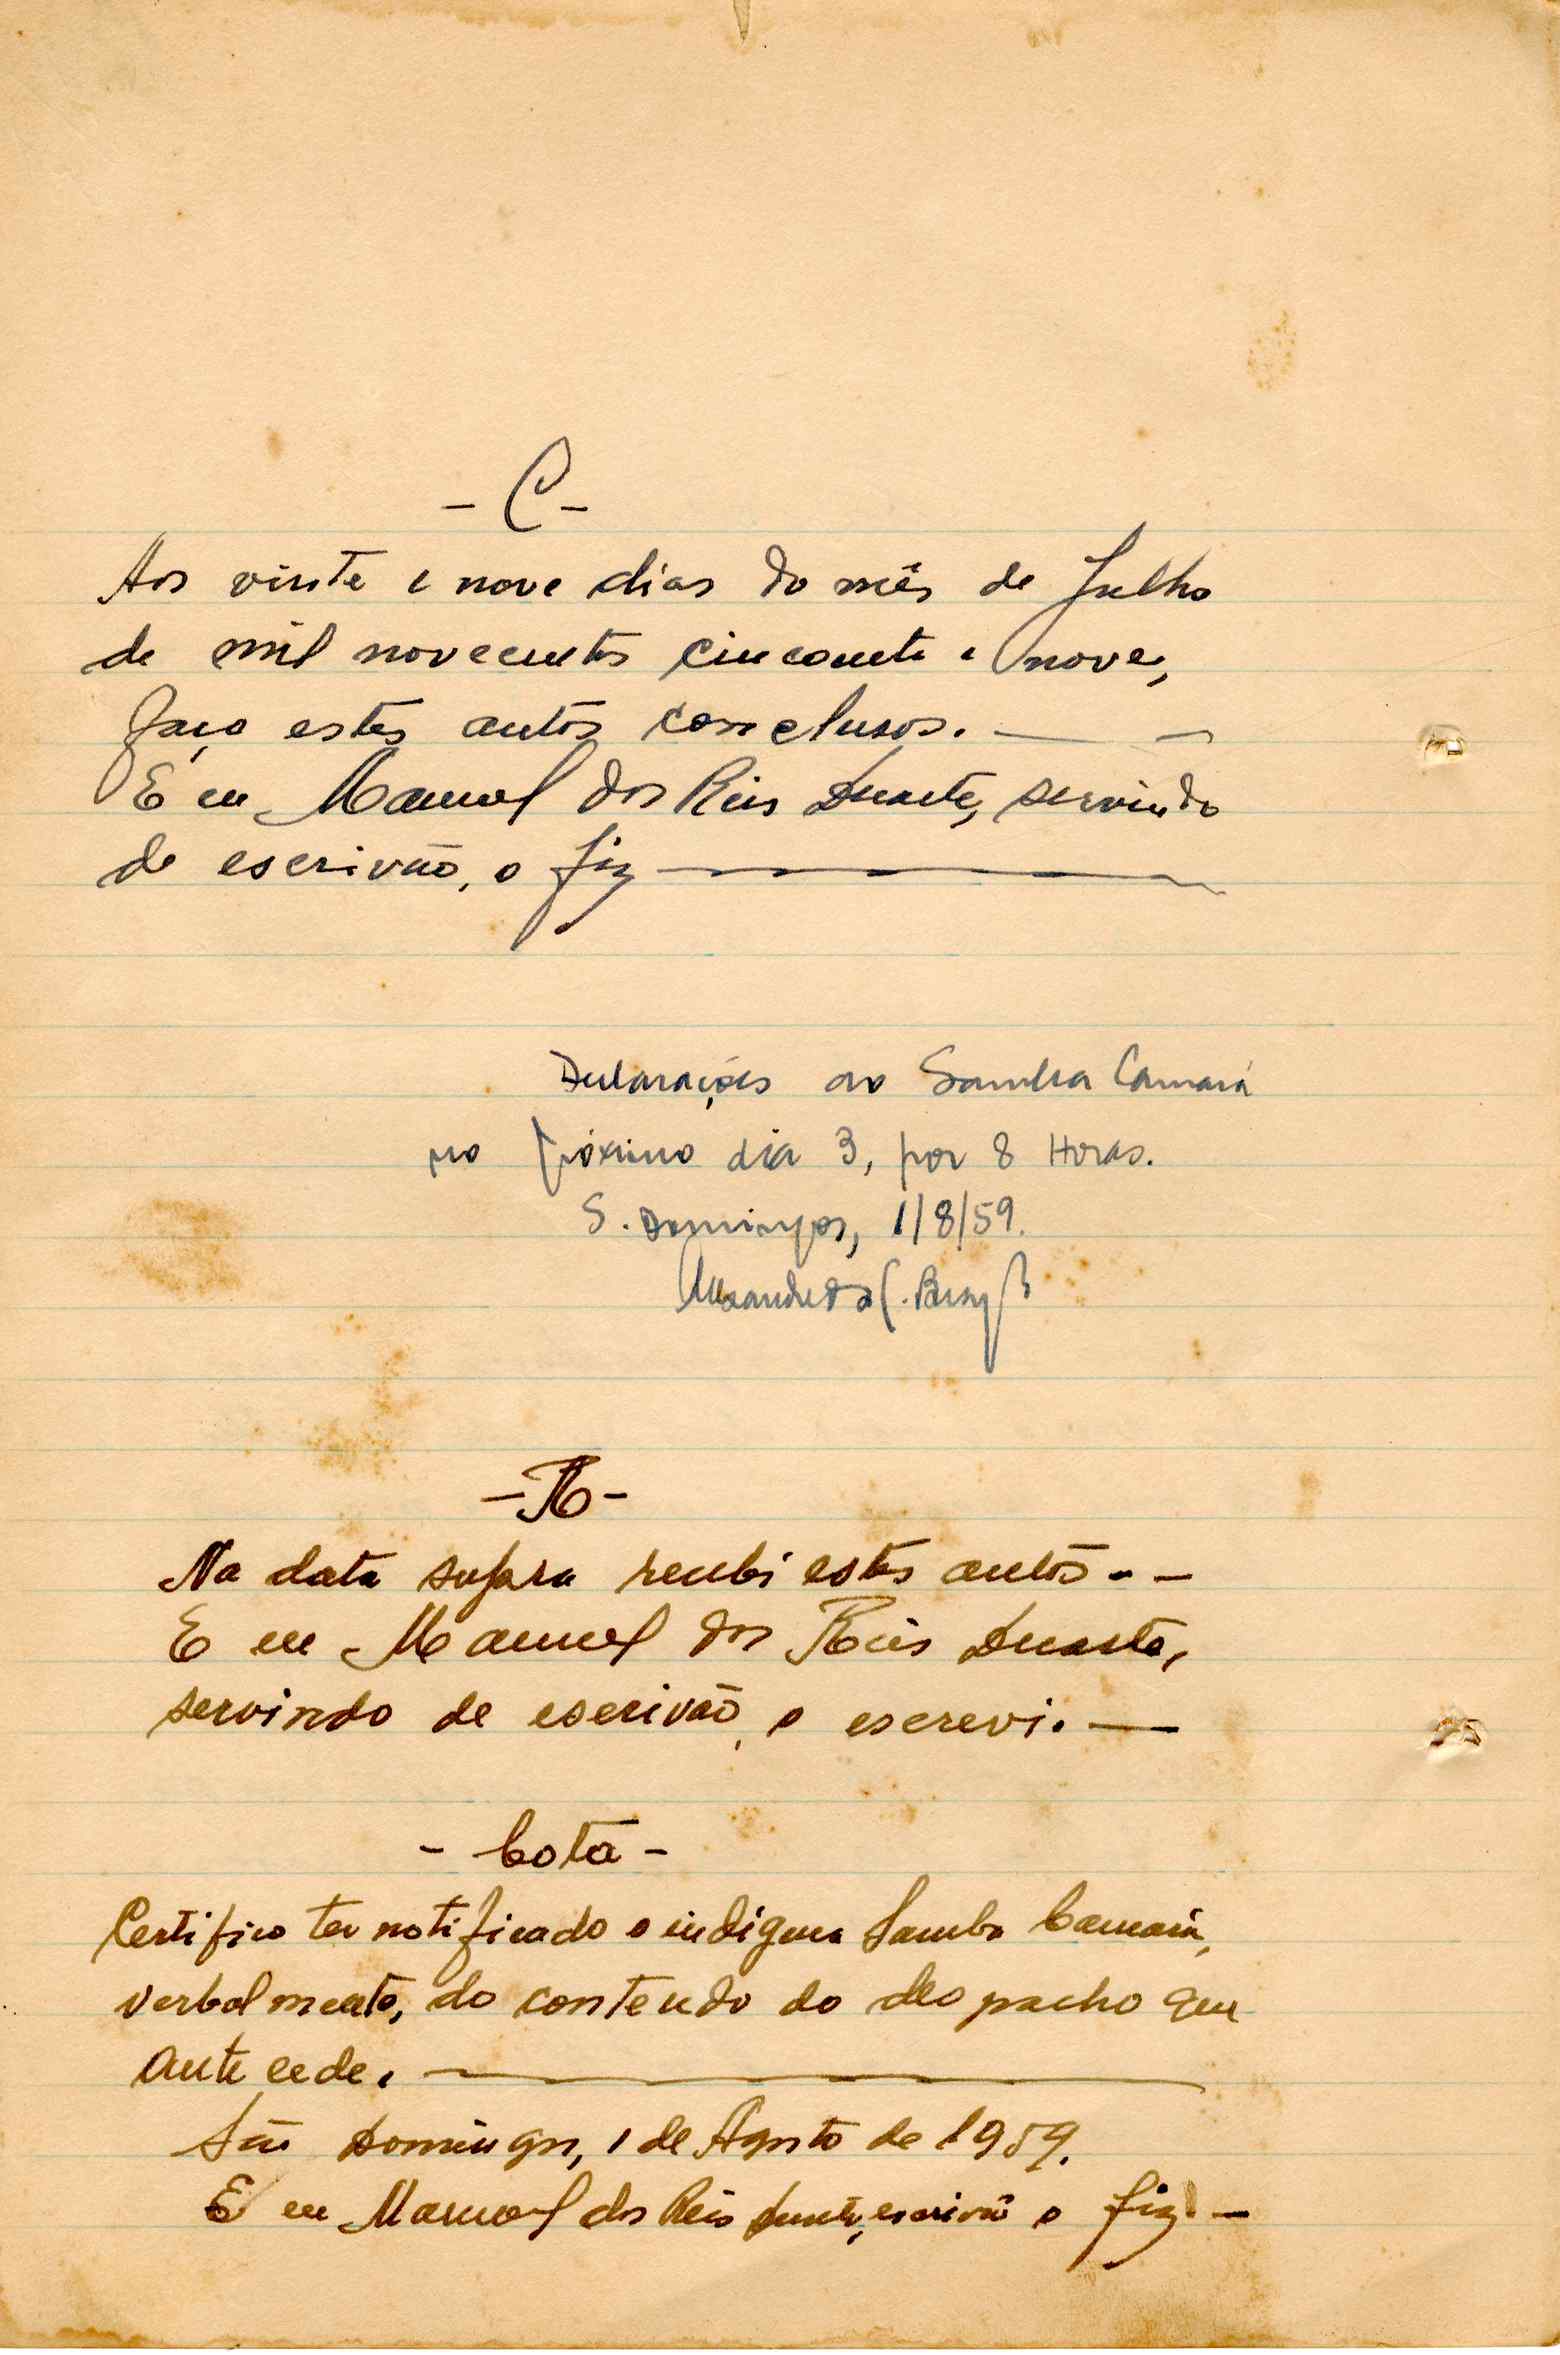 - C -
Aos vinte e nove dias do mês de Julho
de mil novecentos cincoenta e nove,
faço estes autos conclusos. — —
E eu Manuel dos Reis Duarte, servindo
de escrivão, o fiz —
Declarações ao Samba Camará
no próximo dia 3, por 8 Horas.
S. Domingos, 1/8/59.
- R -
Na data supra recebi estes autos. - -
E eu Manuel dos Reis Duarte,
servindo de escrivão, o escrevi. —
- Cota -
Certifico ter notificado o indígena Samba Camará,
verbalmente, do conteudo do despacho que
antecede. —
São Domingos, 1 de Agosto de 1959.
E eu Manuel dos Reis Duarte, escrivão o fiz. —